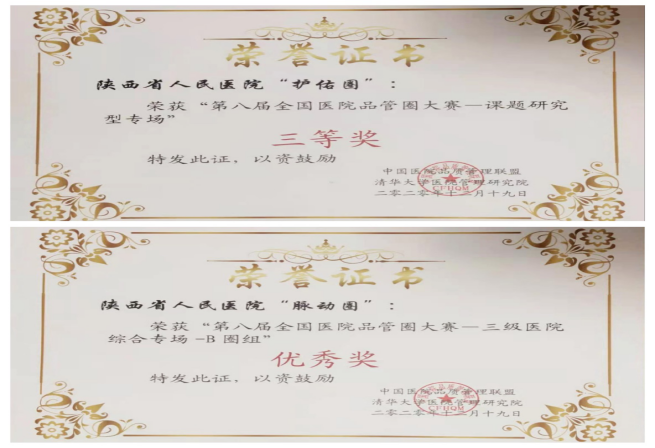 荣誉证书
陕西省人民医院“护佑圈”：
荣获“第八届全国医院品管圈大赛—课题研究
型专场”
三等奖
特发此证，以资鼓励
中国医院品质管理联盟
清华大学医院管理研究院
二零二零年十二月十九日
CFUQM
荣誉证书
陕西省人民医院“脉动圈”：
荣获“第八届全国医院品管圈大赛—三级医院
综合专场-B圈组”
优秀奖
特发此证，以资鼓励
中国医院品质管理联盟
清华大学医院管理研究院
二零二零年十二月十九日
CFUQM